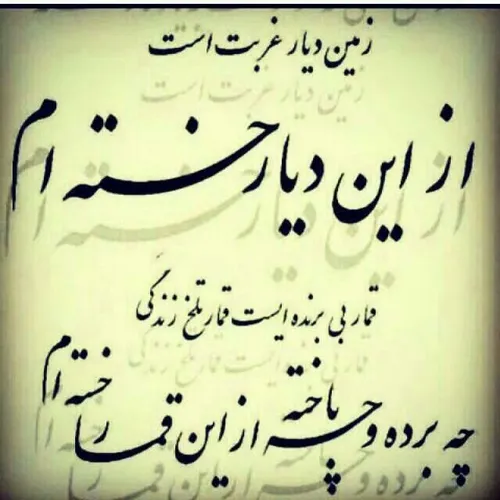 زمین دیار غربت است
از این دیار خسته ام
قمار بی برنده ایست قمار تلخ زندگی
چه برده و چه باخته از این قمار خسته ام